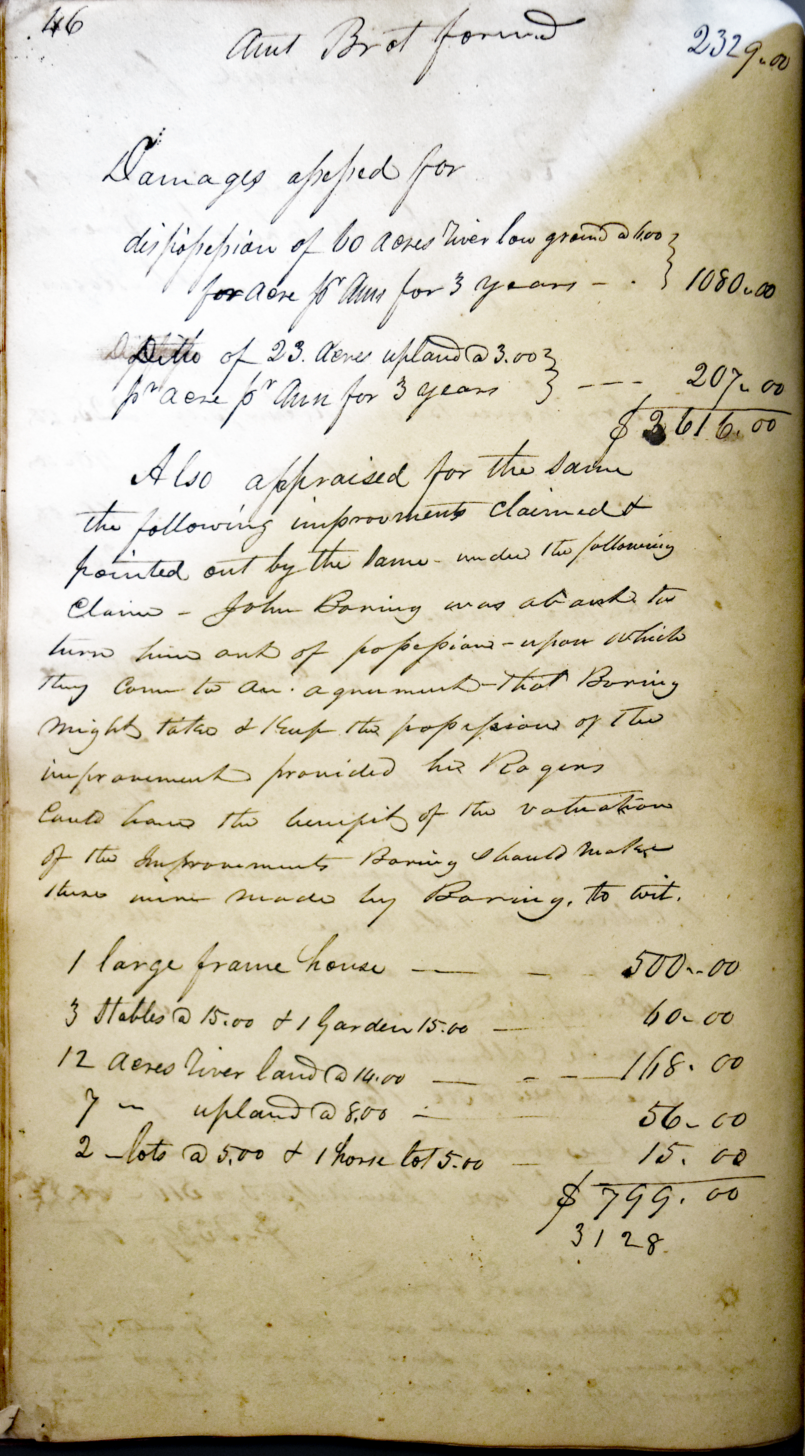 46
Amt Brot forward 2329.00
Damages assessed for
dispossession of 60 acres River low ground @ 6.00
for acre pr Ann for 3 years - . } 1080.00
Ditto of 23. Acres upland @ 3.00 }
pr acre pr Ann for 3 years } - - - 207.00
$ 3616.00
Also appraised for the same
the following improvments claimed &
pointed out by the same - under the following
Claim - John Boring was about to
turn him out of possession - upon which
they come to an agreement - that Boring
might take & keep the possession of the
improvement provided he Rogers
Could have the benifit of the valuation
of the Improvements Boring should make
these were made by Boring, to wit.
1 large frame house — - 500.00
3 Stables @ 15.00 & 1 Garden 15.00 - 60.00
12 acres River land @ 14.00 — - - 168.00
7 " upland @ 8.00 - 56.00
2 lots @ 5.00 & 1 horse lot 5.00 - 15.00
$ 799.00
3128